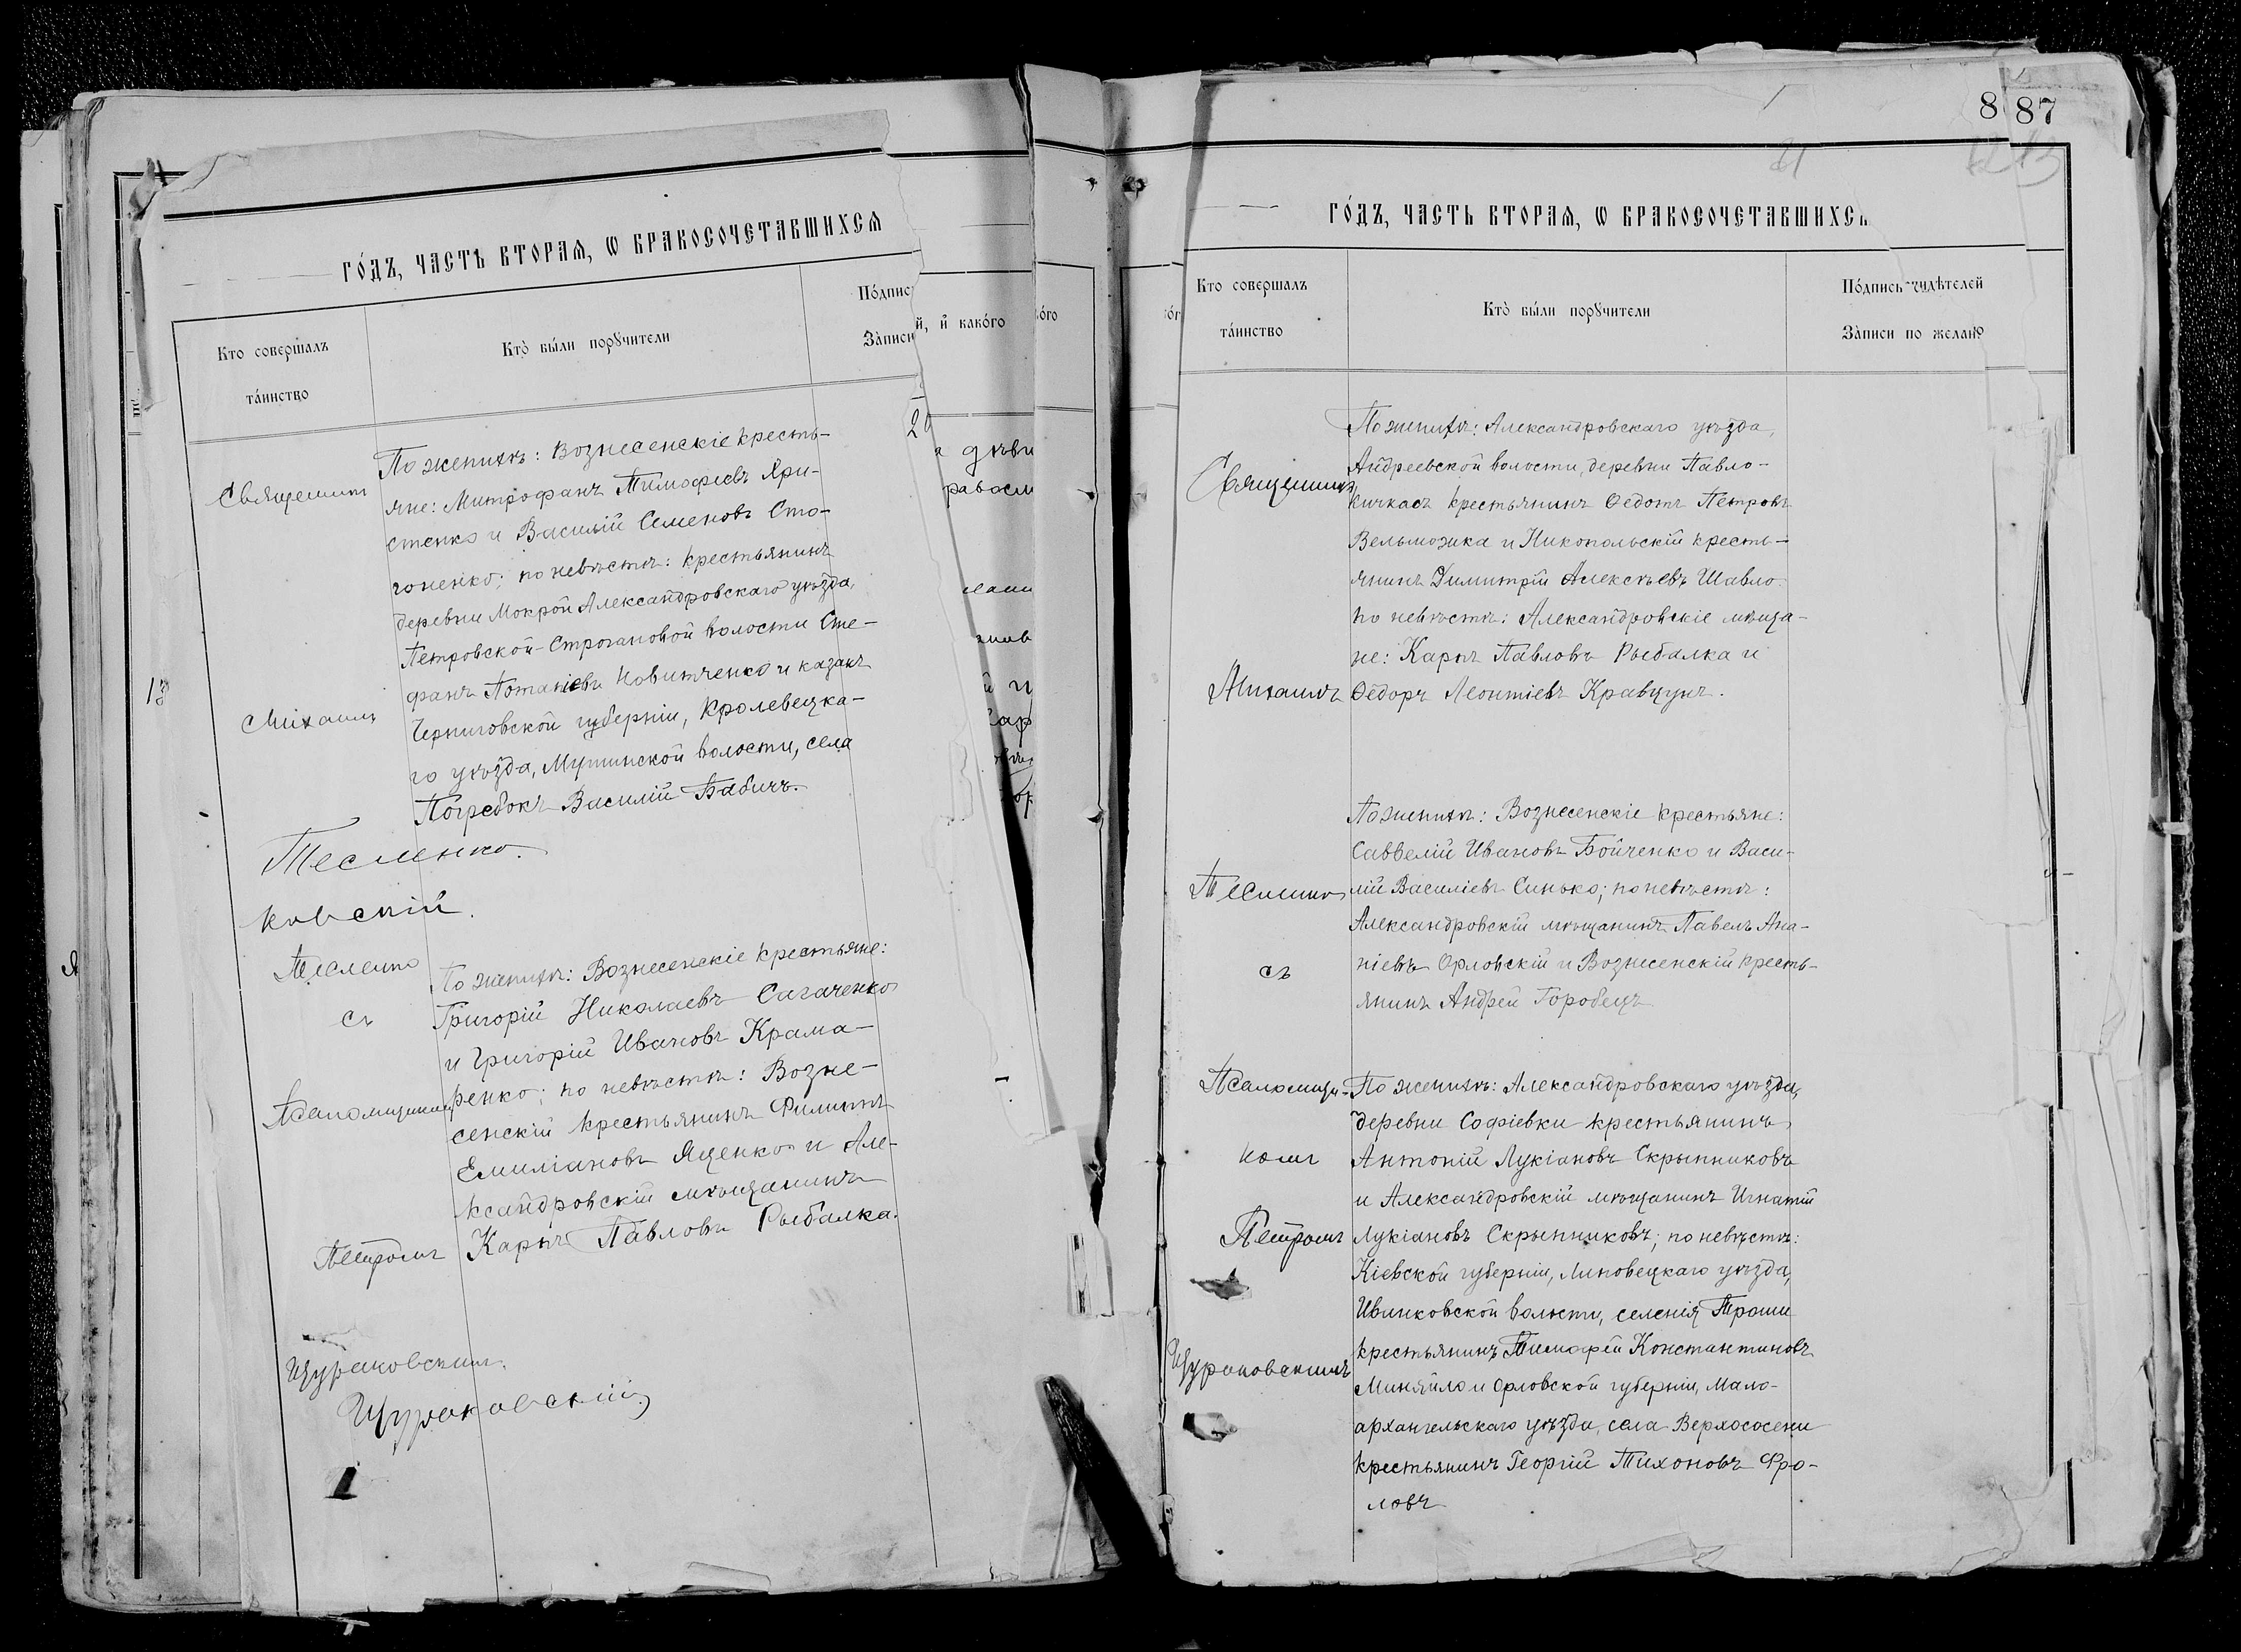 ГО́ДЪ, ЧАСТЬ ВТОРАѦ, Ѡ БРАКОСОЧЕТАВШИХСѦ
Кто совершалъ
та́инство
Кто̀ бы́ли порꙋчители
По́дпис
За̀писи
Священникъ
Михаилъ
Тесленко.
ковскій.
Тесленко
съ
Псаломщикомъ
Петромъ
Щураковскимъ.
Щураковскій
По женихѣ: Вознесенскіе кресть-
яне: Митрофанъ Тимофеевъ Яри-
стенко и Василій Семеновъ Сто-
гоненко; по невѣстѣ: крестьянинъ
деревни Мокрой Александровскаго уѣзда,
Петровской-Строгановой волости Сте-
фанъ Потапіевъ Новитченко и казакъ
Черниговской губерніи, Кролевецка-
го уѣзда, Мутинской волости, села
Погребокъ Василій Бабичъ.
По женихѣ: Вознесенскіе крестьяне:
Григорій Николаевъ Сагаченко
и Григорій Ивановъ Крама-
ренко; по невѣстѣ: Возне-
сенскій крестьянинъ Филиппъ
Емиліановъ Яценко и Але-
ксандровскій мѣщанинъ
Карпъ Павловъ Рыбалка.
й, и҆ како́го
о́го
8 87
21
ГО́ДЪ, ЧАСТЬ ВТОРАѦ, Ѡ БРАКОСОЧЕТАВШИХСѦ
Кто совершалъ
та́инство
Кто̀ бы́ли порꙋчители
По́дпись
За̀писи по желан
Священникъ
Михаилъ
Тесленко
съ
Псаломщи-
комъ
Петромъ
Щураковскимъ
По женихѣ: Александровскаго уѣзда,
Андреевской волости, деревни Павло-
кичкасъ крестьянинъ Ѳедотъ Петровъ
Вельможка и Никопольскій кресть-
янинъ Димитрій Алексѣевъ Шавло.
по невѣстѣ: Александровскіе мѣща-
не: Карпъ Павловъ Рыбалка и
Ѳедоръ Леонтіевъ Кравцунъ.
По женихѣ: Вознесенскіе крестьяне:
Саввелій Ивановъ Бойченко и Васи-
лій Василіевъ Синько; по невѣстѣ:
Александровскій мѣщанинъ Павелъ Ана-
ніевъ Орловскій и Вознесенскій кресть-
янинъ Андрей Горобецъ
По женихѣ: Александровскаго уѣзда,
деревни Софіевки крестьянинъ
Антоній Лукіановъ Скрынниковъ
и Александровскій мѣщанинъ Игнатій
Лукіановъ Скрынниковъ; по невѣстѣ:
Кіевской губерніи, Липовецкаго уѣзда,
волости, селенія
крестьянинъ Тимофей Константиновъ
Миняйло и Орловской губерніи, Мало-
архангельскаго уѣзда, села Верхососени
крестьянинъ Георгій Тихоновъ Фро-
ловъ